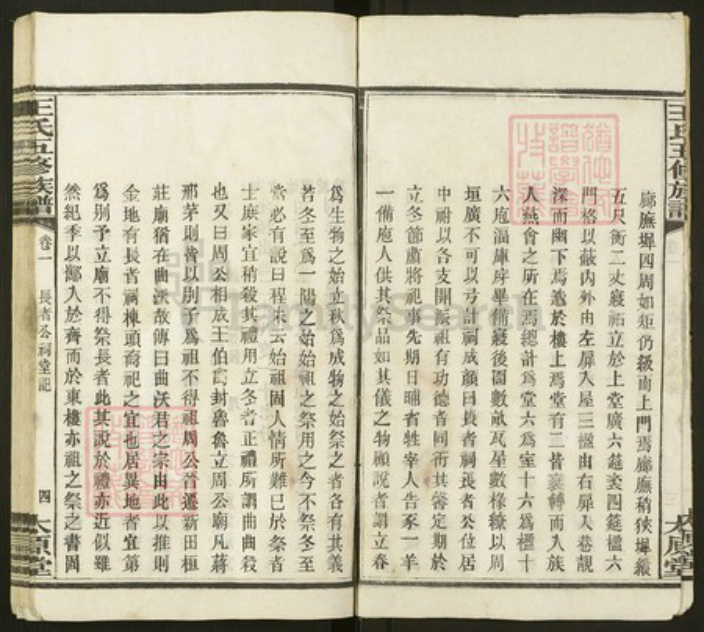 王氏五修族譜
廊廡墀四周如矩仍級而上門焉廊廡稍狹墀縱
五尺衡二丈寢祏立於上堂廣六筵袤四筵楹六
門格以蔽內外由左屏入屋三楹由右屏入巷覿
深而幽下焉遬於樓上焉堂有二皆轉而入族
人燕會之所在焉總計為堂六為室十六為楹十
六庖湢庫庌畢備寢後園數畝瓦星數椽繚以周
垣廣不可以弓計祠成顏曰長者祠長者公位居
中祔以各支開派祖有功德者同祔其齋定期於
立冬節肅將祀事先期日晡省牲宰人告豕一羊
一備庖人供其祭品如其儀之物願說者謂立春
為生物之始立秋為成物之始祭之者各有其義
若冬至為一陽之始始祖之祭用之今不祭冬至
當必有說曰程朱云始祖固人情所難已於祭者
士庶家宜稍殺其禮用立冬者正禮所謂曲曲殺
也又曰周公相成王伯禽封魯魯立周公廟凡蔣
邢茅則皆以別子為祖不得祖周公晉遷新田桓
莊廟猶在曲沃故傳曰曲沃君之宗由此以推則
金地有長者祠棟頭裔祀之宜也居異地者宜第
為別子立廟不得祭長者此其說於禮亦近似雖
然紀季以酅入於齊而於東樓亦祖之祭之書固
王氏五修族譜
卷一
長者公祠堂記
四
太原堂
太原堂
FamilySearch